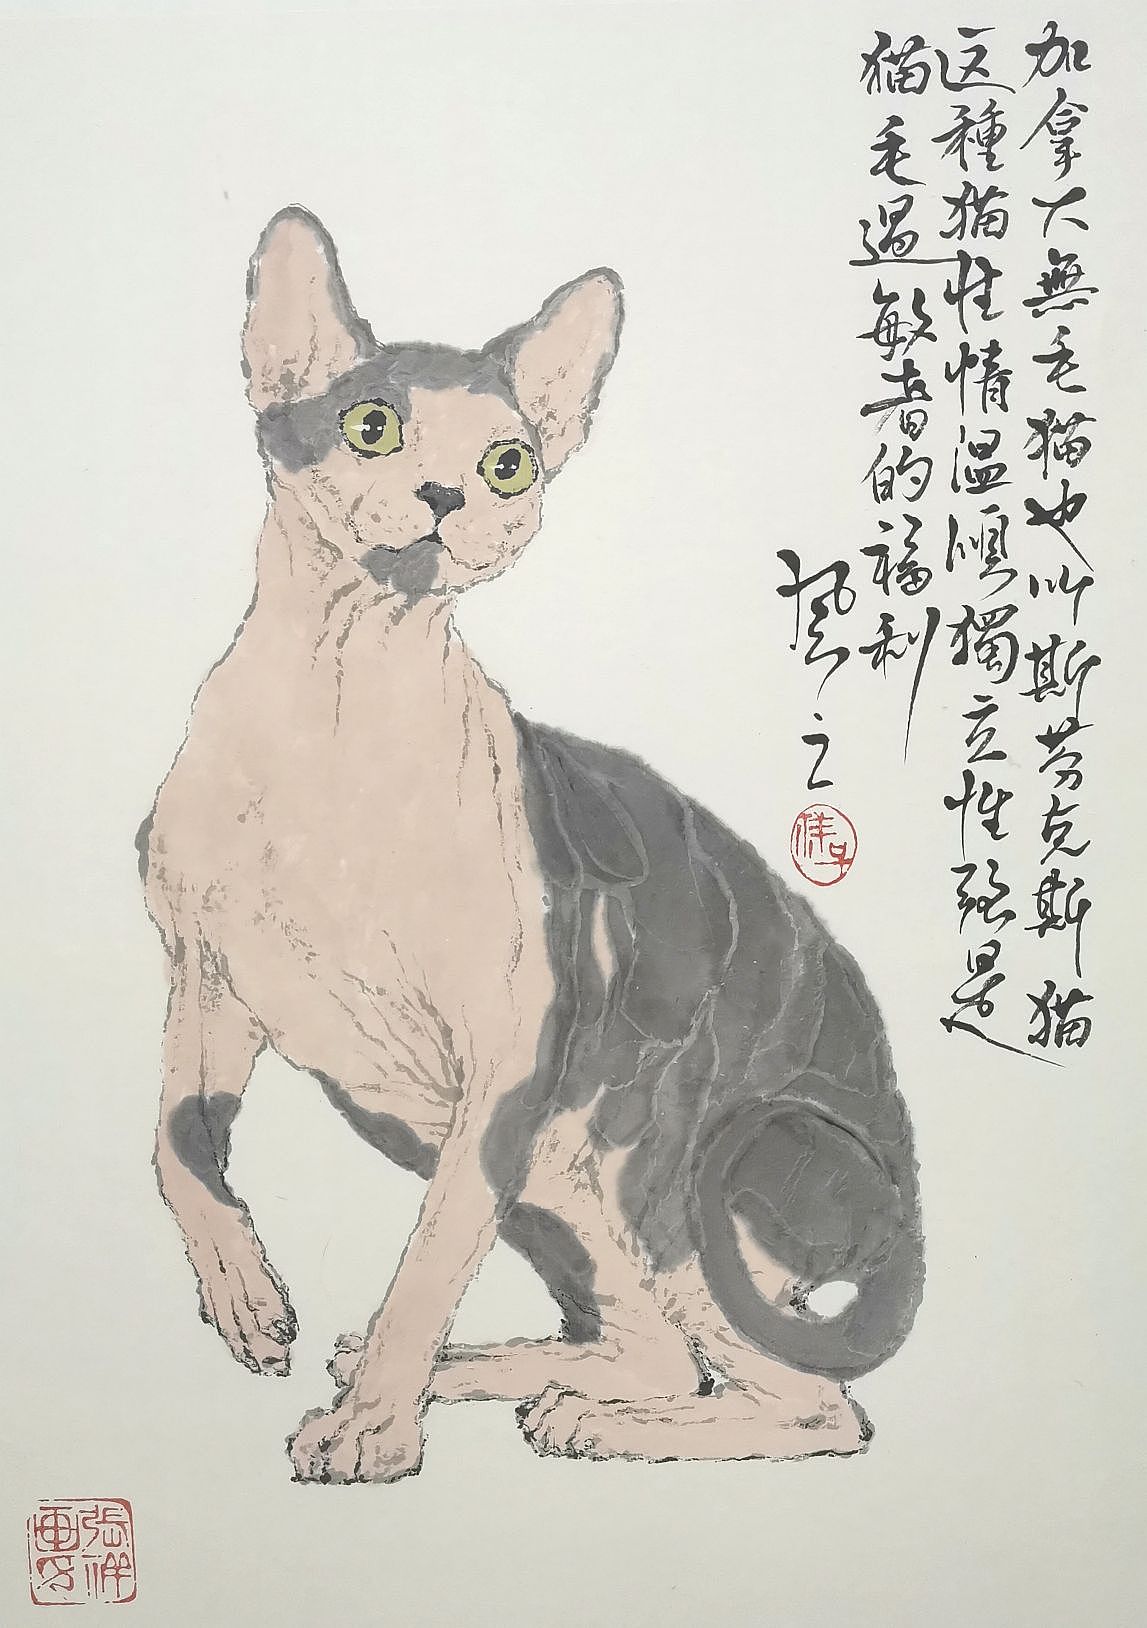 加拿大無毛猫也叫斯芬克斯猫
这種猫性情温順獨立性强是
猫毛過敏者的福利